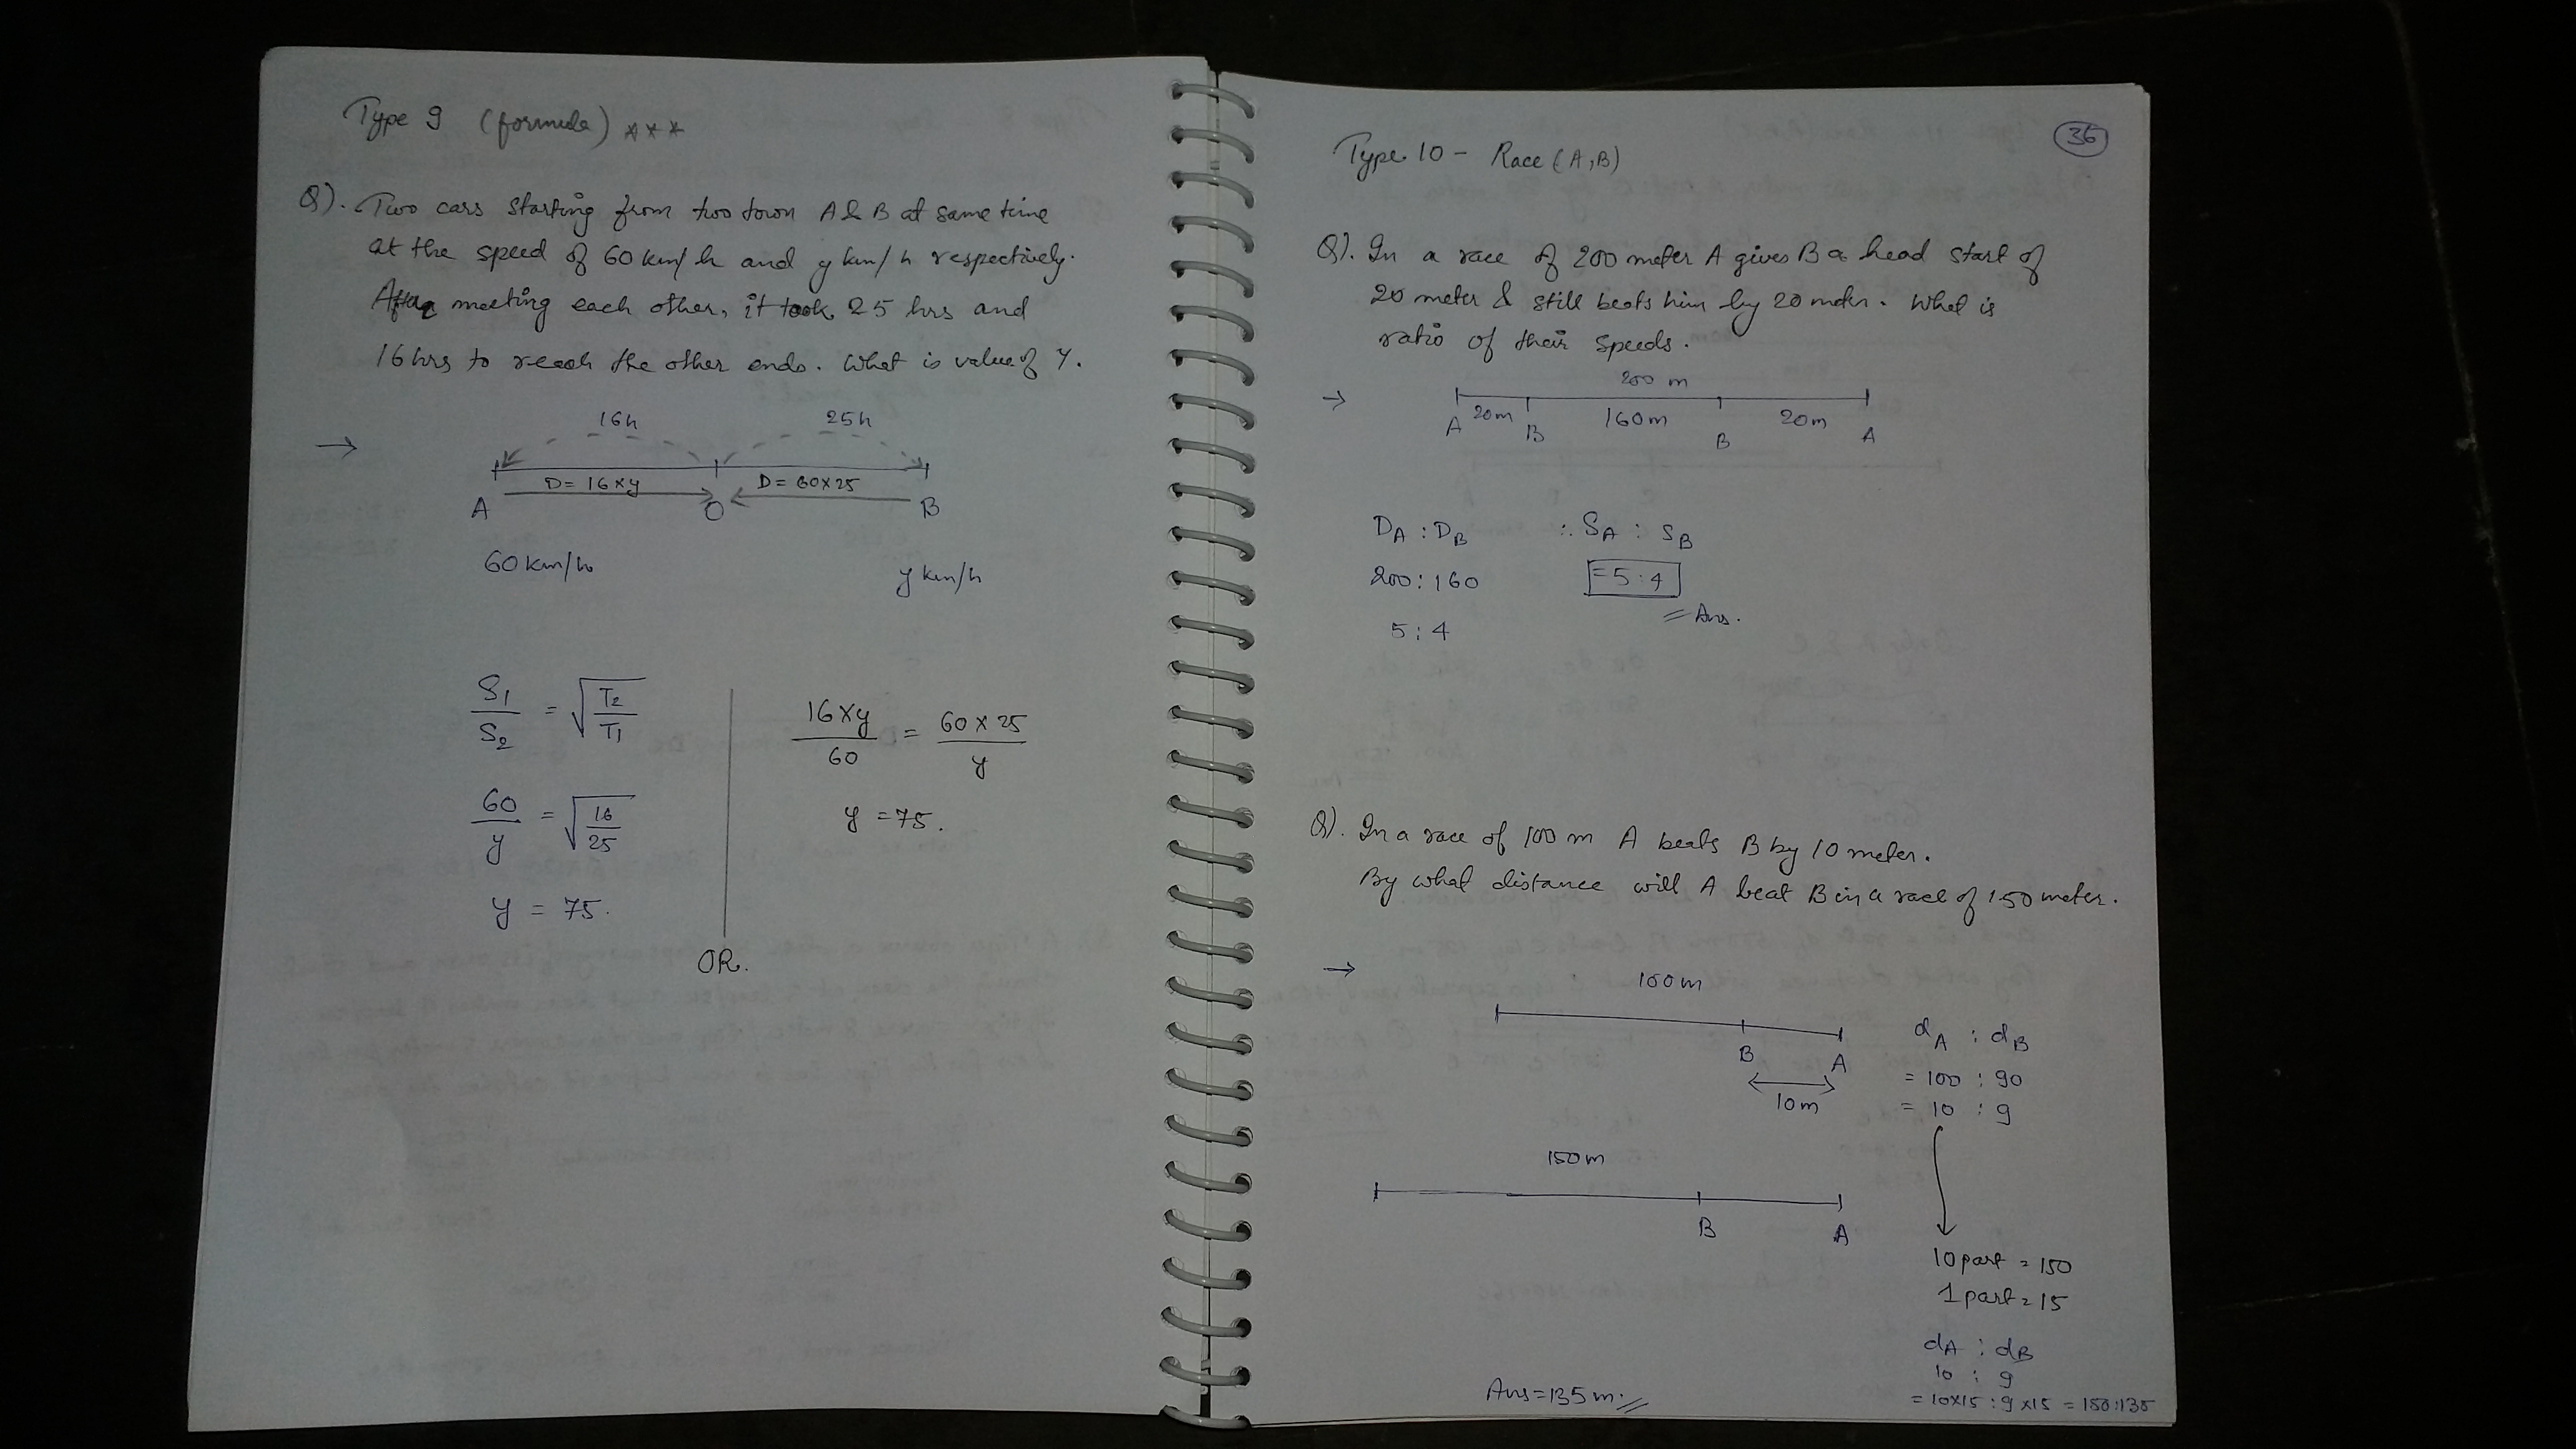 Type 9 (formula) ***
Q). Two cars starting from two town A & B at same time
at the speed of 60 km/h and y km/h respectively.
After meeting each other, it took 25 hrs and
16 hrs to reach the other ends. What is value of Y.
→
16h 25h
D = 16×y D = 60×25
A O B
60 km/h y km/h
S1/S2 = √(T2/T1)
60/y = √(16/25)
y = 75.
OR.
16×y/60 = 60×25/y
y = 75.
36
Type 10 - Race (A,B)
Q). In a race of 200 meter A gives B a head start of
20 meter & still beats him by 20 meter. What is
ratio of their speeds.
→
200 m
A 20m B 160m B 20m A
DA : DB ∴ SA : SB
200 : 160 = 5 : 4
= Ans.
5 : 4
Q). In a race of 100 m A beats B by 10 meter.
By what distance will A beat B in a race of 150 meter.
→
100m
B A
10m
dA : dB
= 100 : 90
= 10 : 9
150m
B A
10 part = 150
1 part = 15
dA : dB
10 : 9
= 10×15 : 9×15 = 150:135
Ans = 135 m.